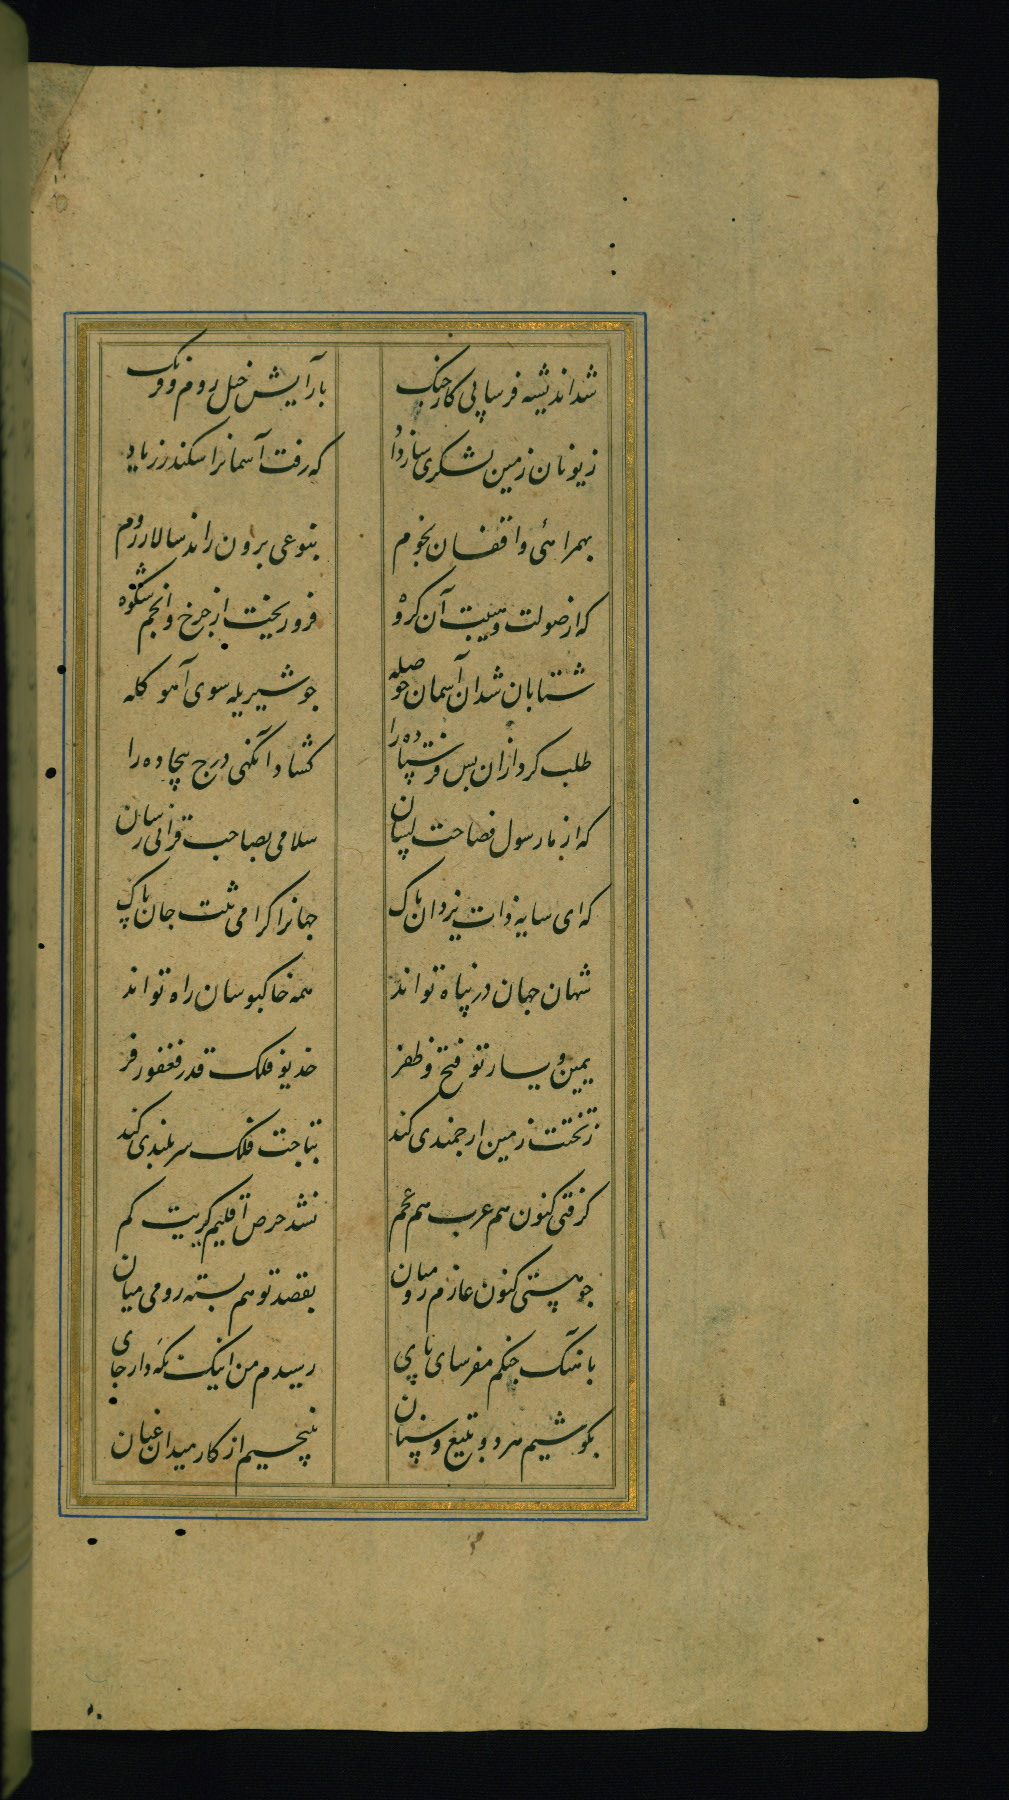 شد اندیشه فرسا پی کار جنک بآرایش خیل روم و فرنک
ز یونان زمین لشکری ساز داد که رفت آسمانرا سکندر ز یاد
بهمراهئی واقفان نجوم بنوعی برون راند سالار روم
که از صولت و هیبت آن کروه فرو ریخت از چرخ و انجم شکوه
شتابان شد آن آسمان حوصله جو شیر یله سوی آهو کله
طلب کرد ازان پس فرستاده را کشاد آنکهی درج بیجاده را
که از ما رسول فصاحت لسان سلامی بصاحب قرانی رسان
که ای سایه ذات یزدان پاک جهانرا کرامی تنت جان پاک
شهان جهان در پناه تواند همه خاکبوسان راه تواند
یمین و یسار تو فتح و ظفر خدیو فلک قدر فغفور فر
ز تختت زمین ارجمندی کند بتاجت فلک سر بلندی کند
کرفتی کنون هم عرب هم عجم نشد حرص اقلیم کریت کم
جو هستی کنون عازم رومیان بقصد تو هم بسته رومی میان
بآهنک جنکم مفرسای پای رسیدم من اینک نکه دار جای
بکوشیم هر دو بتیغ و سنان نپیچیم از کار میدان عنان